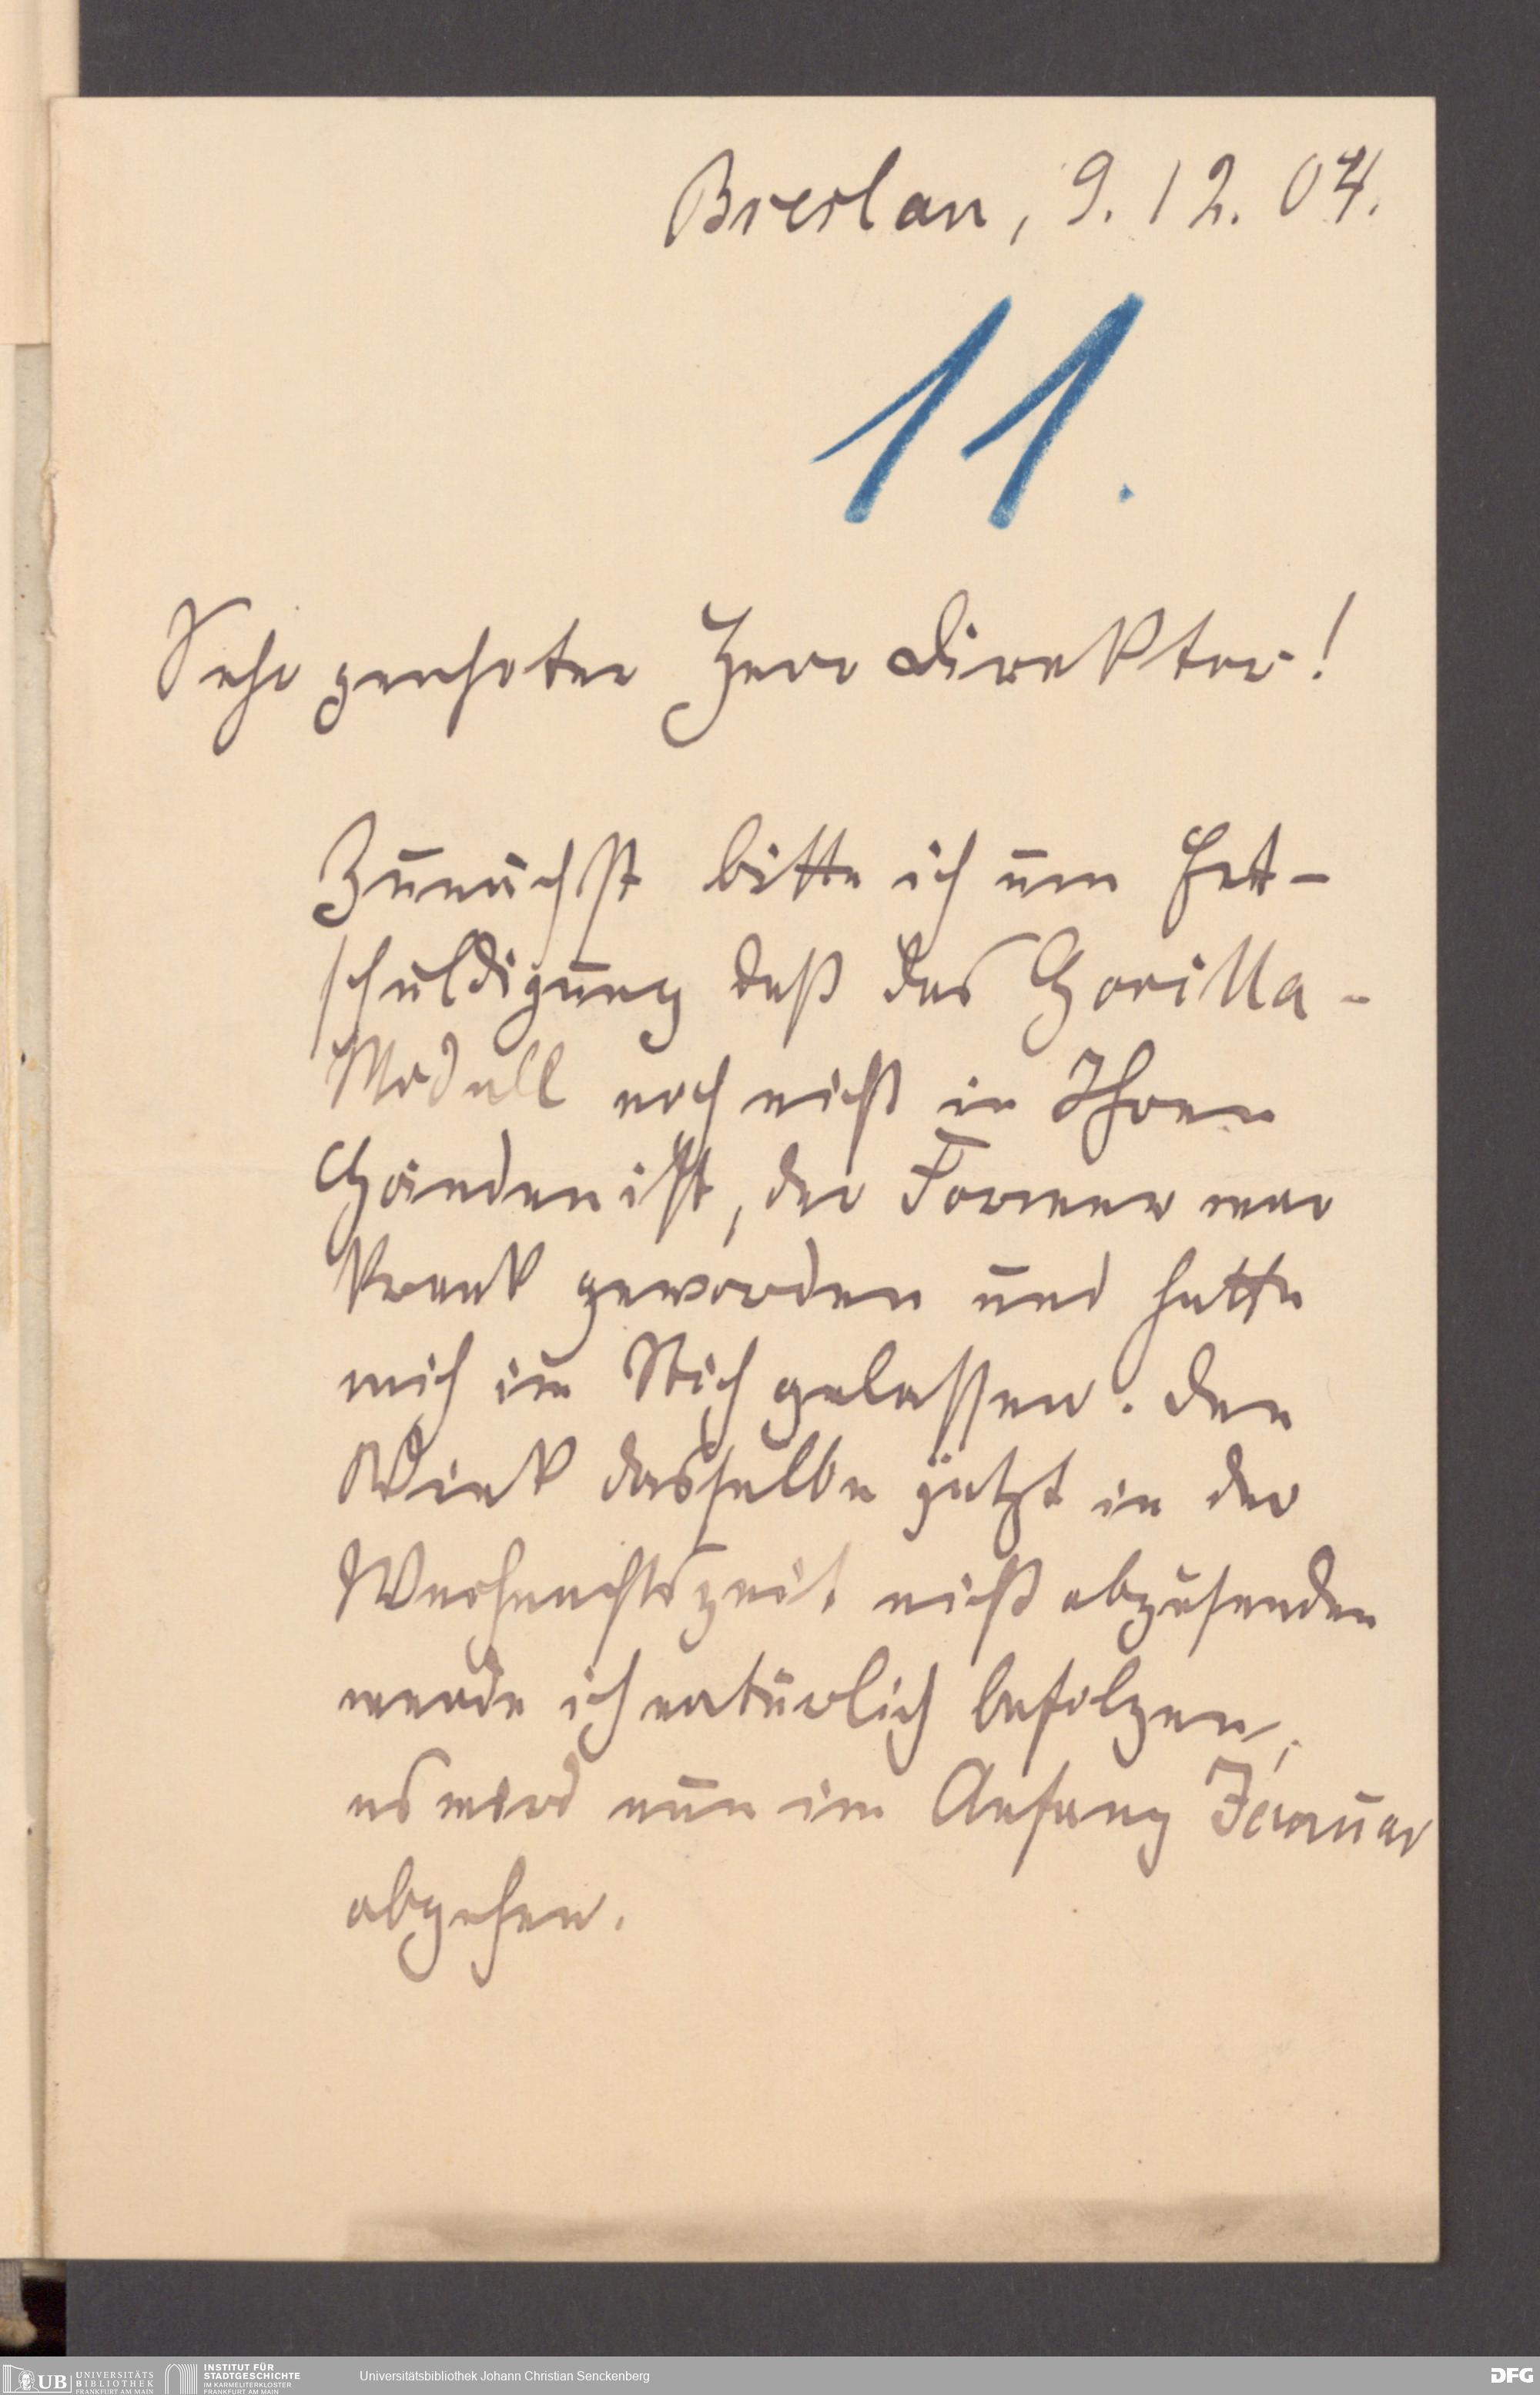 Breslau, 9. 12. 04.
11.
Sehr geehrter Herr Direktor!
Zunächst bitte ich um Ent-
schuldigung daß das Gorilla-
Modell noch nicht in Ihren
Händen ist, der Former war
krank geworden und hatte
mich im Stich gelassen. Den
Wink dasselbe jetzt in der
Weihnachtszeit nicht abzusenden
werde ich natürlich befolgen,
es wird nun im Anfang Januar
abgehen.
UB UNIVERSITÄTS
BIBLIOTHEK
FRANKFURT AM MAIN
INSTITUT FÜR
STADTGESCHICHTE
IM KARMELITERKLOSTER
FRANKFURT AM MAIN
Universitätsbibliothek Johann Christian Senckenberg
DFG